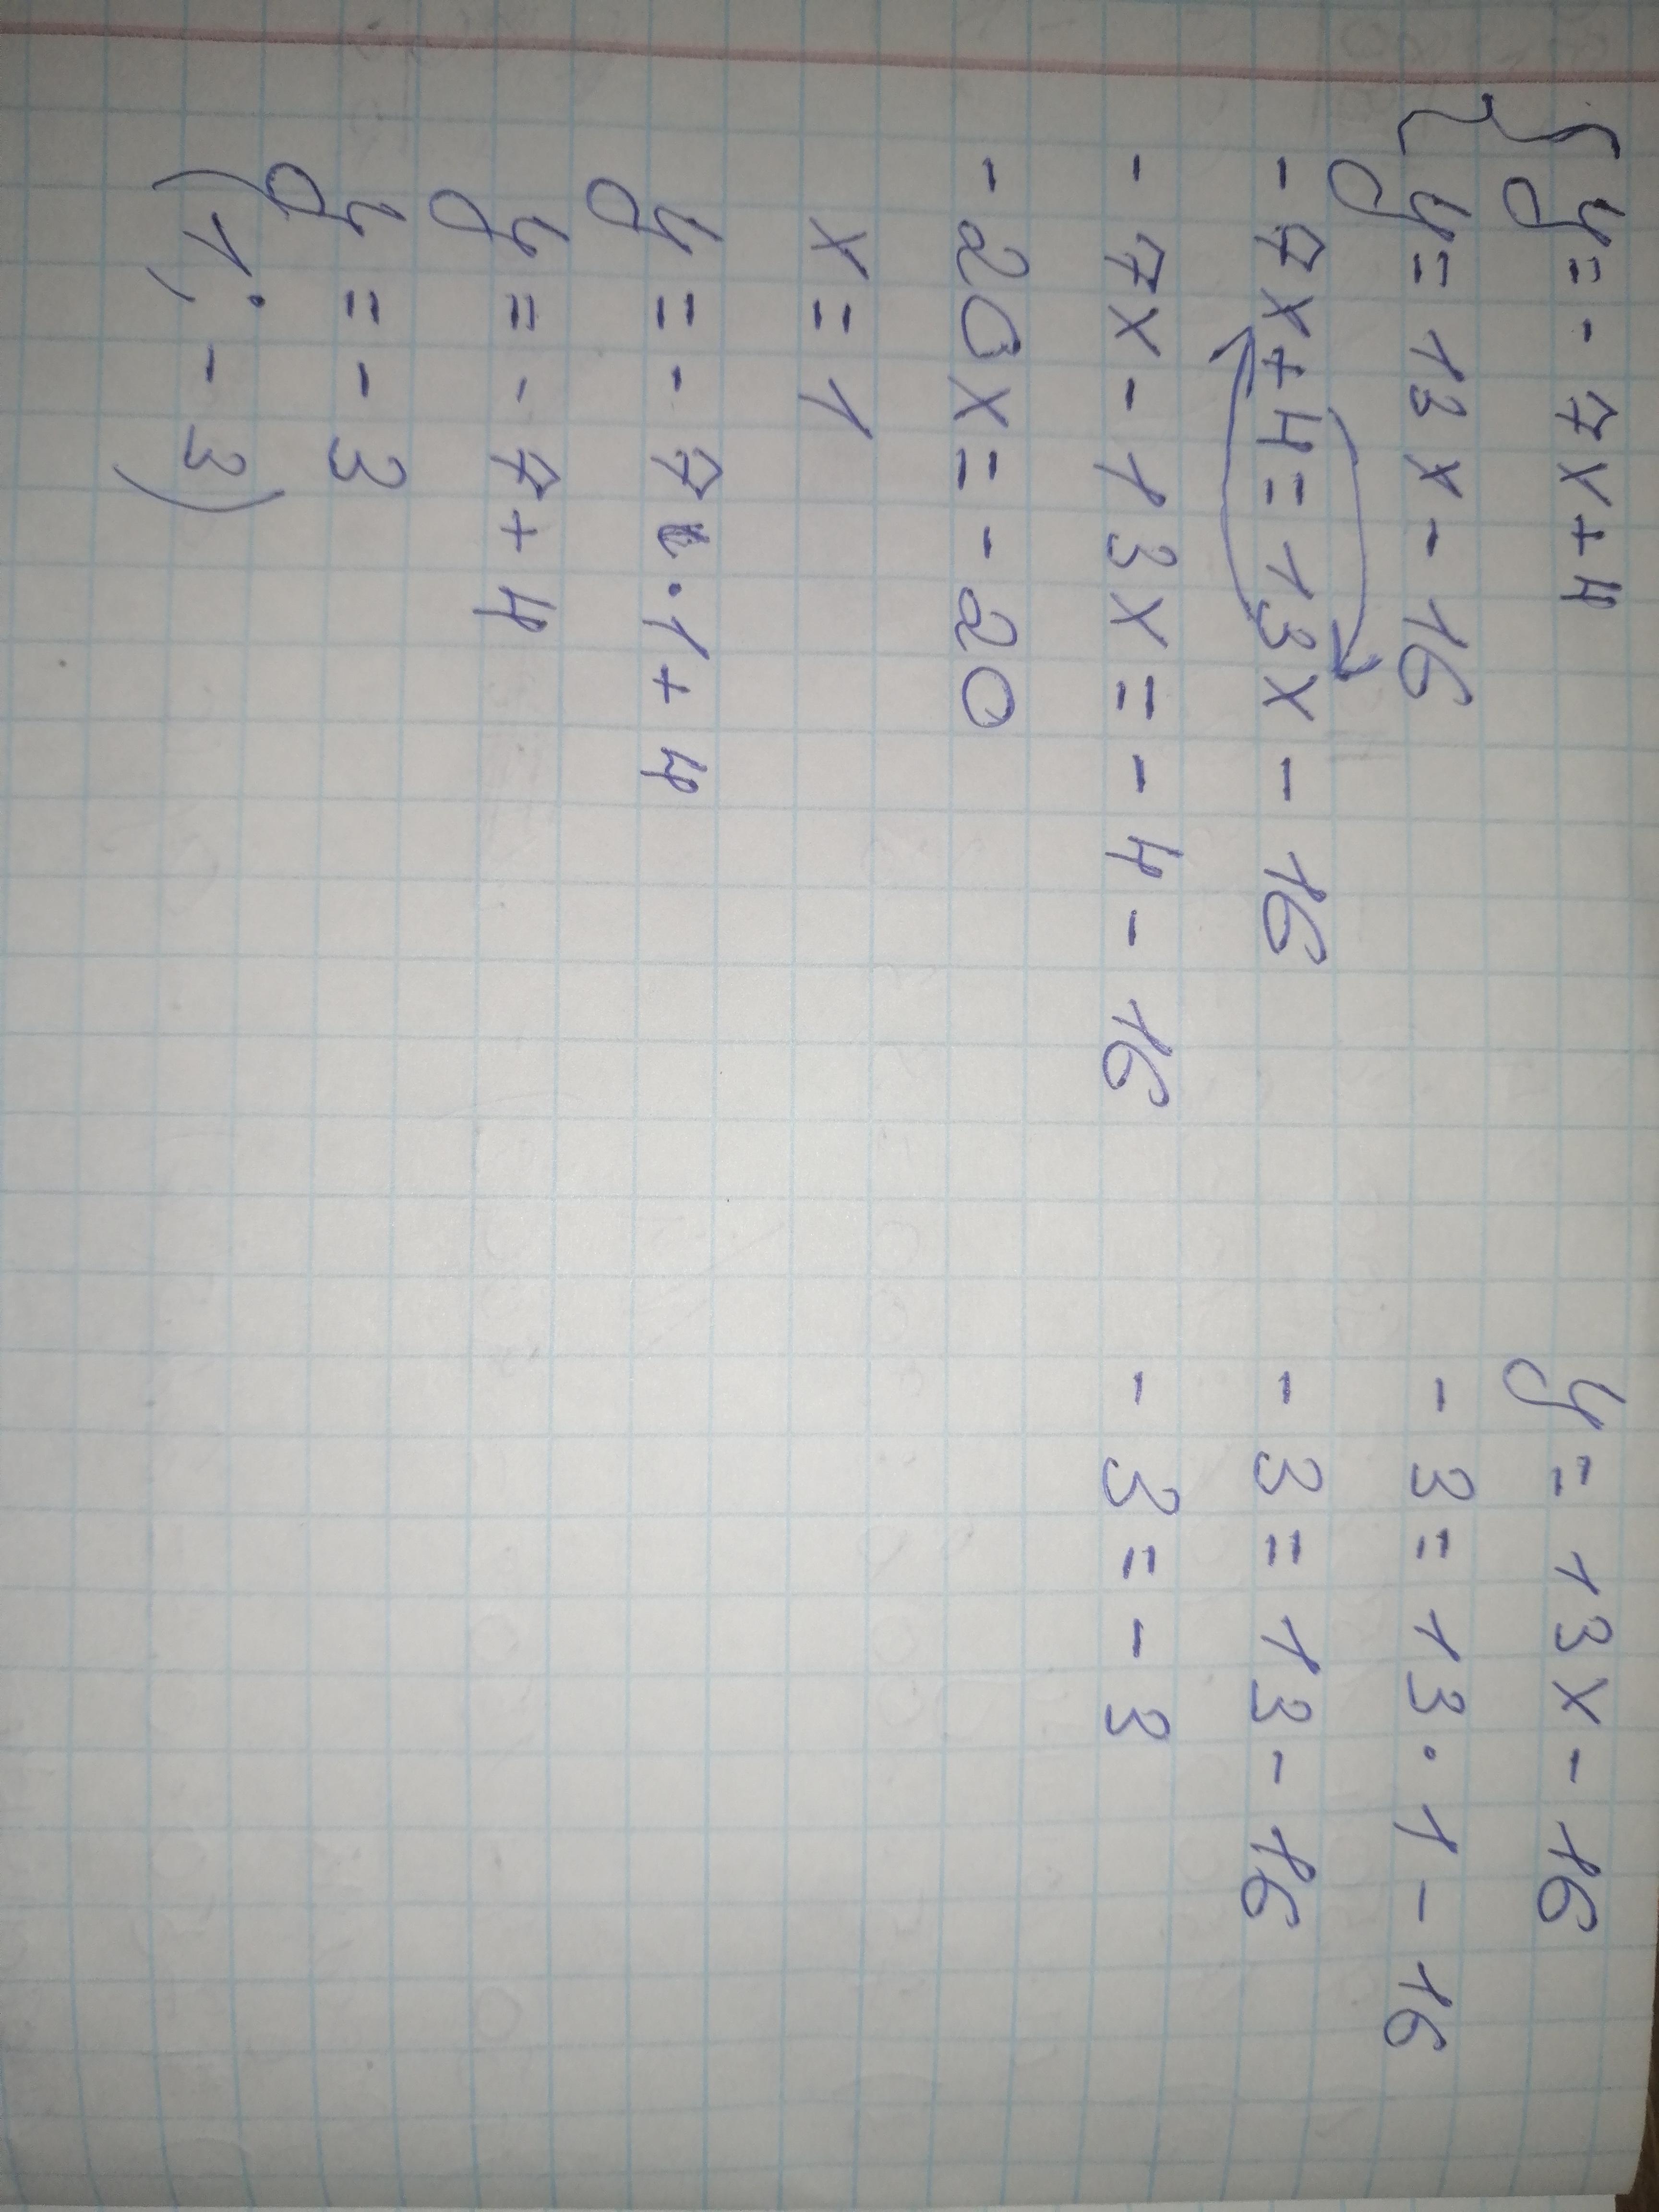 { y = - 7x + 4
y = 13x - 16
- 7x + 4 = 13x - 16
- 7x - 13x = - 4 - 16
- 20x = - 20
x = 1
y = - 7 · 1 + 4
y = - 7 + 4
y = - 3
(1; - 3)
y = 13x - 16
- 3 = 13 · 1 - 16
- 3 = 13 - 16
- 3 = - 3